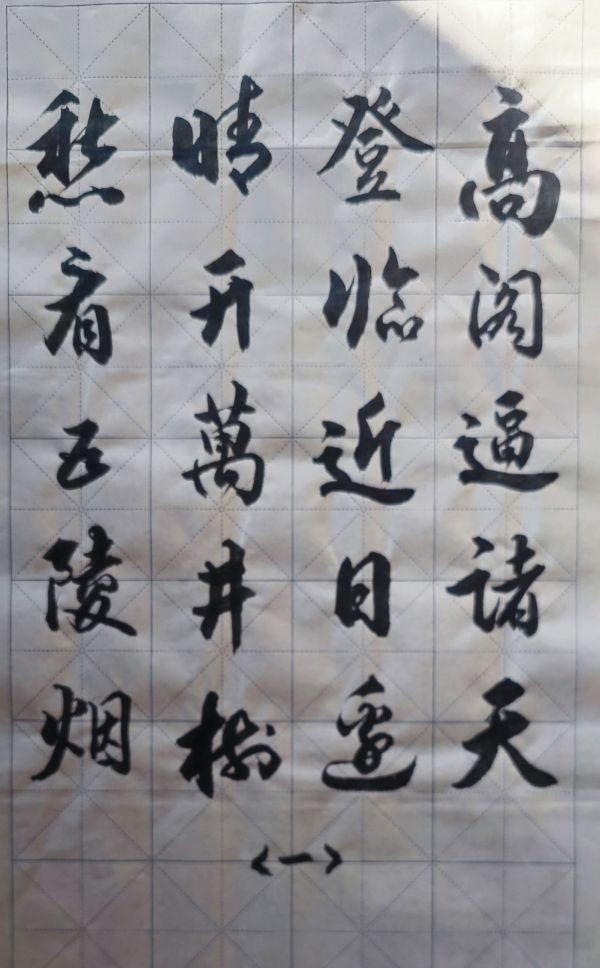 高阁逼诸天
登临近日边
晴开萬井树
愁看五陵烟
<一>